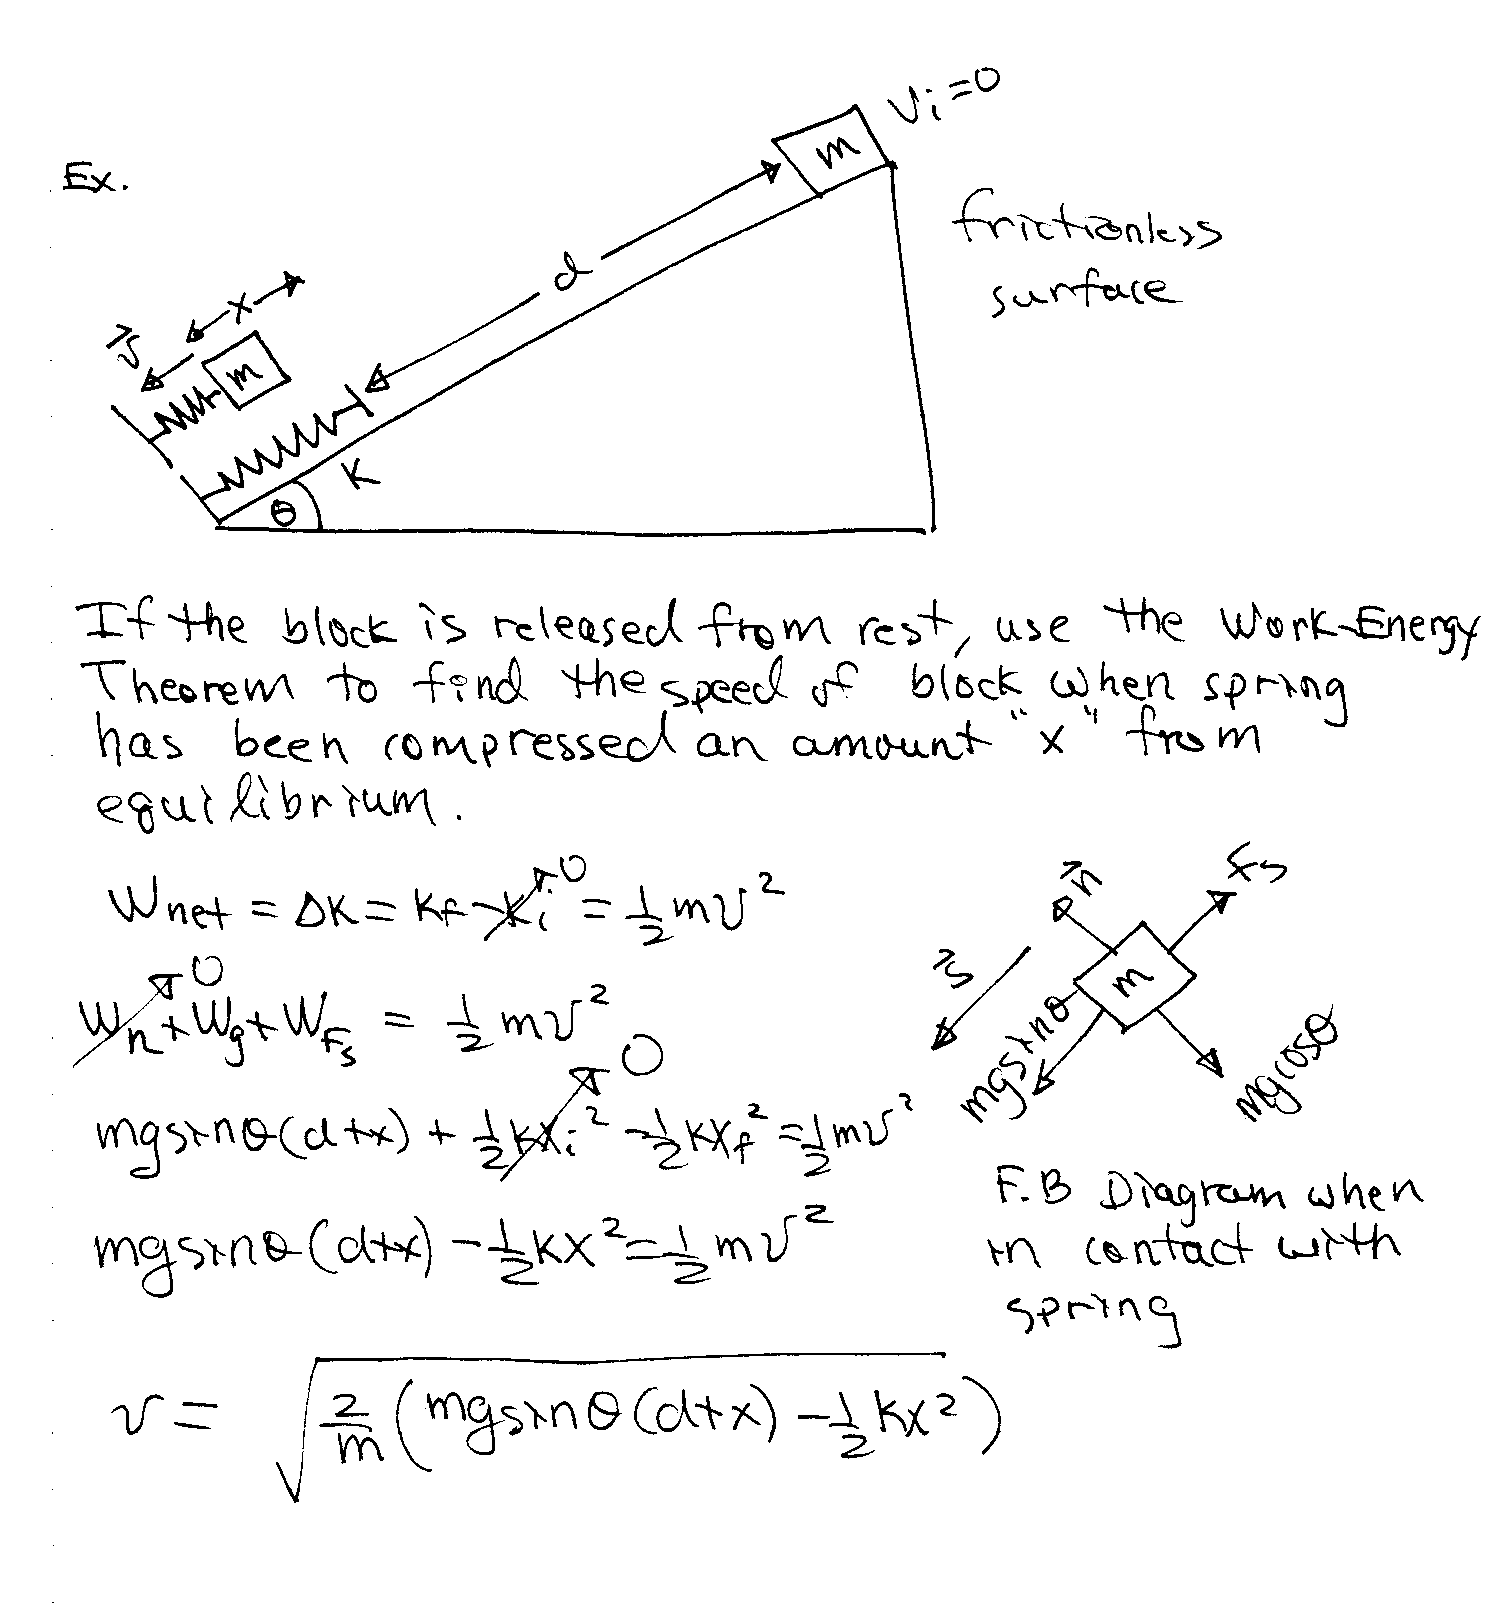 Ex.
vi=0
m
frictionless
surface
d
x
v⃗
m
K
θ
If the block is released from rest, use the Work-Energy
Theorem to find the speed of block when spring
has been compressed an amount "x" from
equilibrium.
Wnet = ΔK = Kf - Ki→0 = 1/2 mv²
Wn→0 + Wg + WFs = 1/2 mv²
mgsinθ(d+x) + 1/2 kxi²→0 - 1/2 kxf² = 1/2 mv²
mgsinθ(d+x) - 1/2 kx² = 1/2 mv²
v = √(2/m (mgsinθ(d+x) - 1/2 kx²))
n⃗
Fs
s⃗
m
mgsinθ
mgcosθ
F.B Diagram when
in contact with
spring